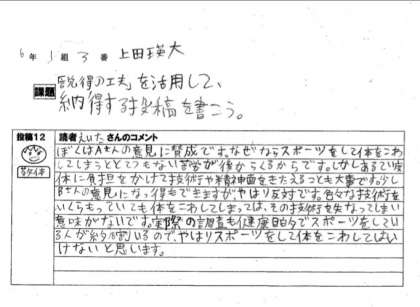 6年 1組 3番 上田瑛大
課題 「説得の工夫」を活用して、
納得する投稿を書こう。
投稿12 読者えいたさんのコメント
ぼくはAさんの意見に賛成です。なぜならスポーツをして体をこわ
してしまうととてつもない苦労が後からくるからです。しかしあるていど
体に負担をかけて技術や精神面をきたえることも大事です。少し
Bさんの意見になっ得もできますが、やはり反対です。色々な技術を
いくらもっていても体をこわしてしまっては、その技術も失なってしまい
意味がないです。実際の調査も健康目的でスポーツをしてい
る人が約 割いるので、やはりスポーツをして体をこわしてはい
けないと思います。